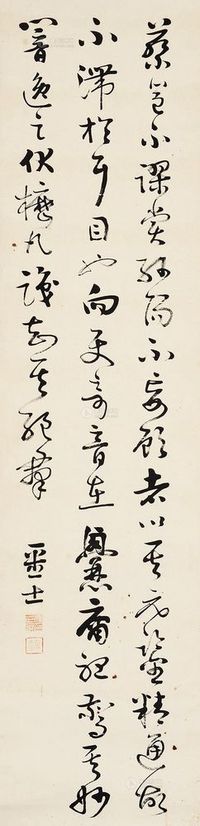 蔡邕不謬賞孫陽不妄顧者以其玄鑒精通故
不滯於耳目也向使奇音在爨庸聽驚其妙
響逸足伏櫪凡識知其絕羣
士